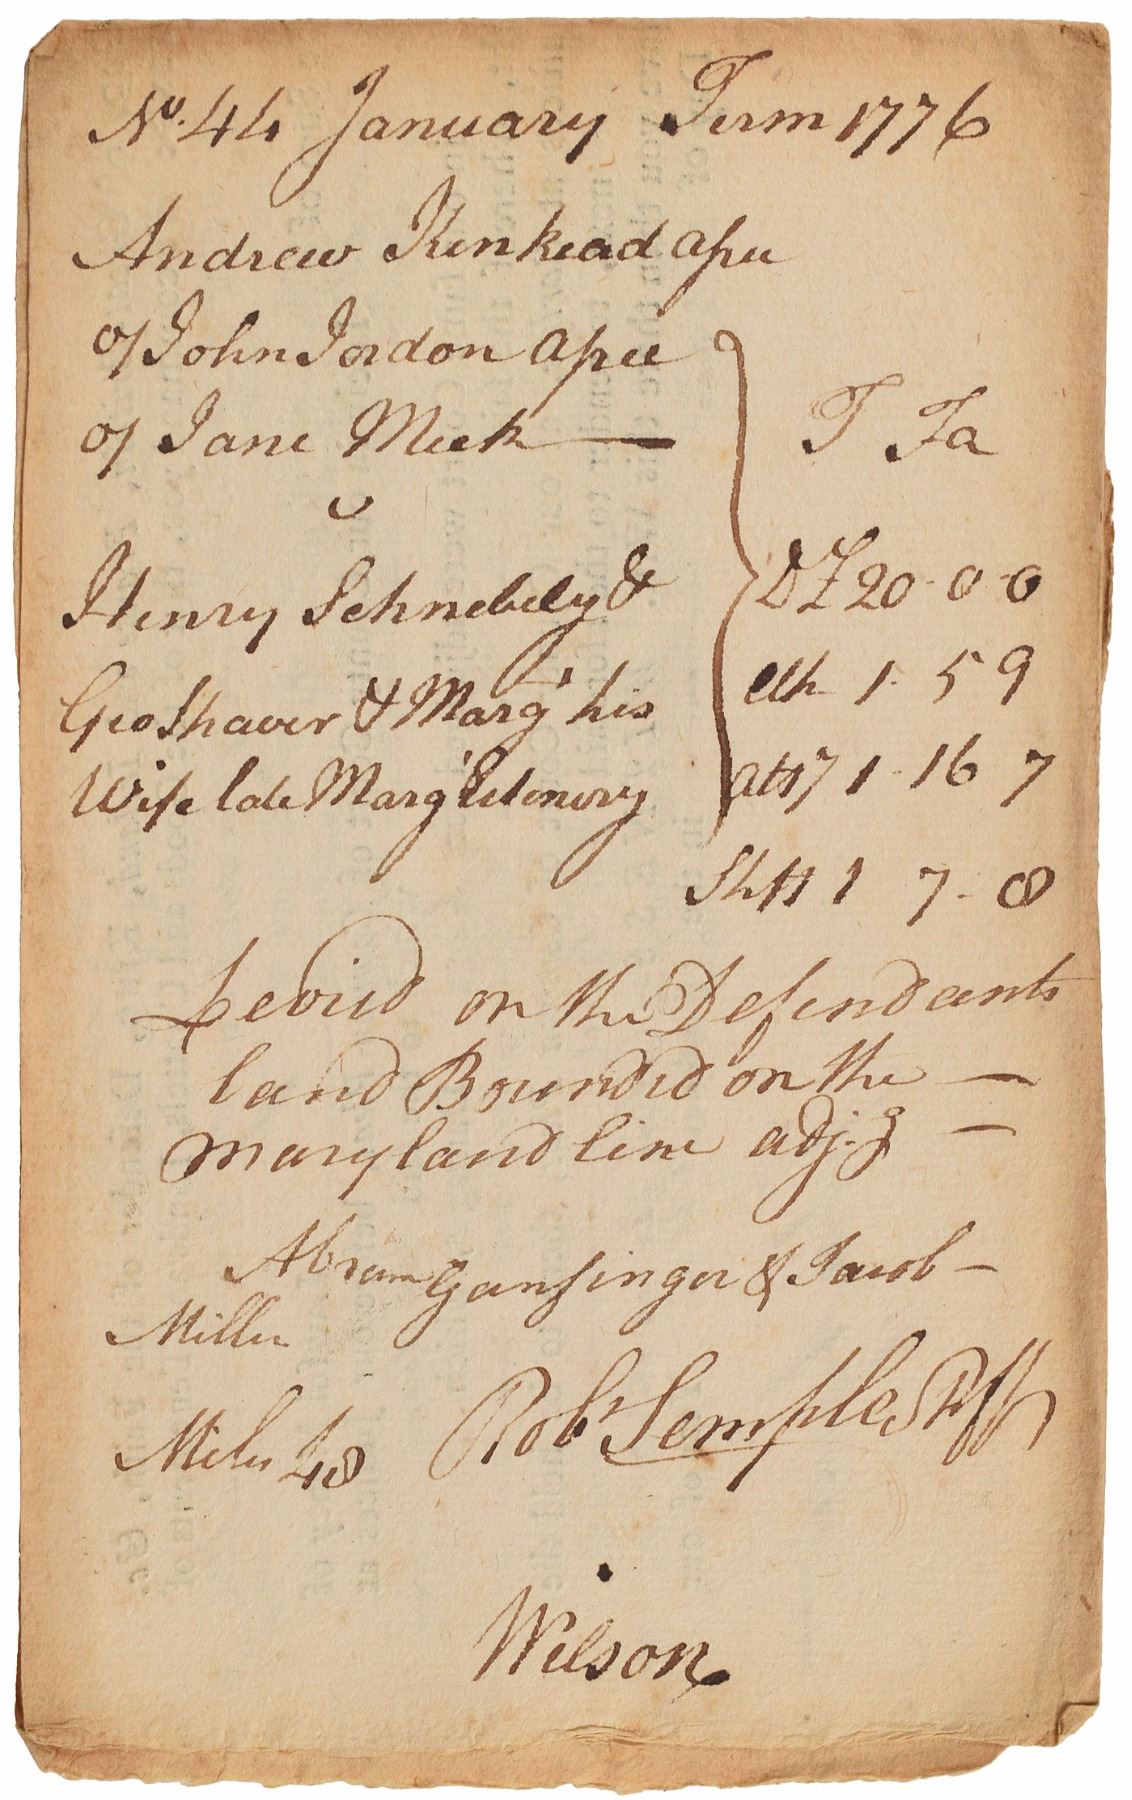 No. 44 January Term 1776
Andrew Kinkead assee
of John Jordon assee
of Jane Meek —
v
Henry Schnebely &
Geo Shaver & Marg't his
Wife late Marg't
T Fa
D £20-0-0
1-5 9
atty 1-16 7
Shff 1 7-8
Levied on the Defendants
land Bounded on the —
Maryland line adj.g —
Abram Gansinger & Jacob —
Miller
Miles 48
Robt Semple Shff
Wilson